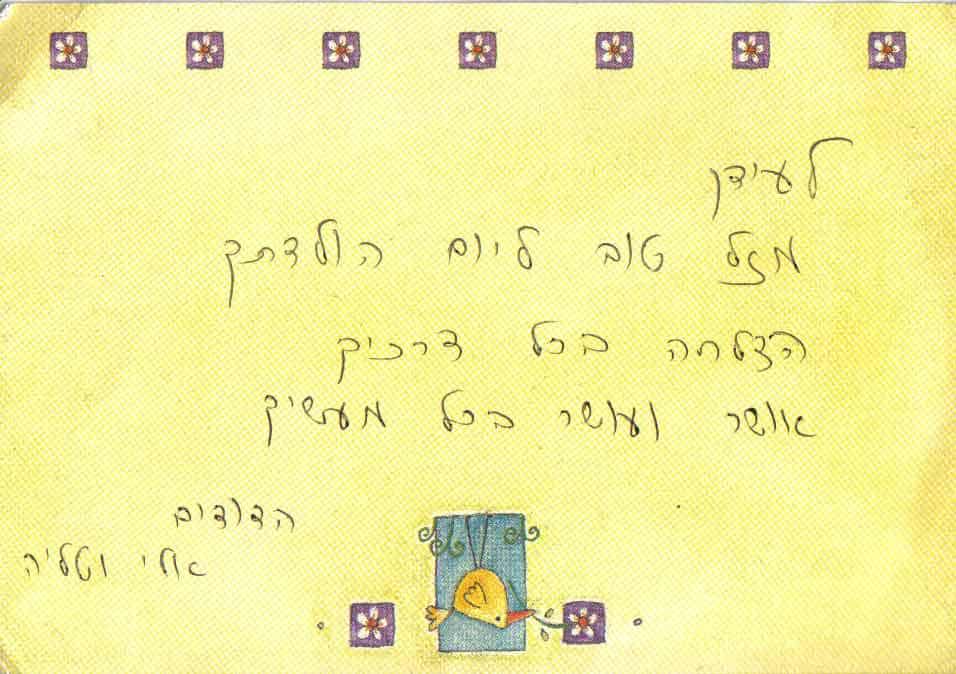 לעידן
מזל טוב ליום הולדתך
הצלחה בכל דרכיך
אושר ועושר בכל מעשיך
הדודים
אולי וטליה